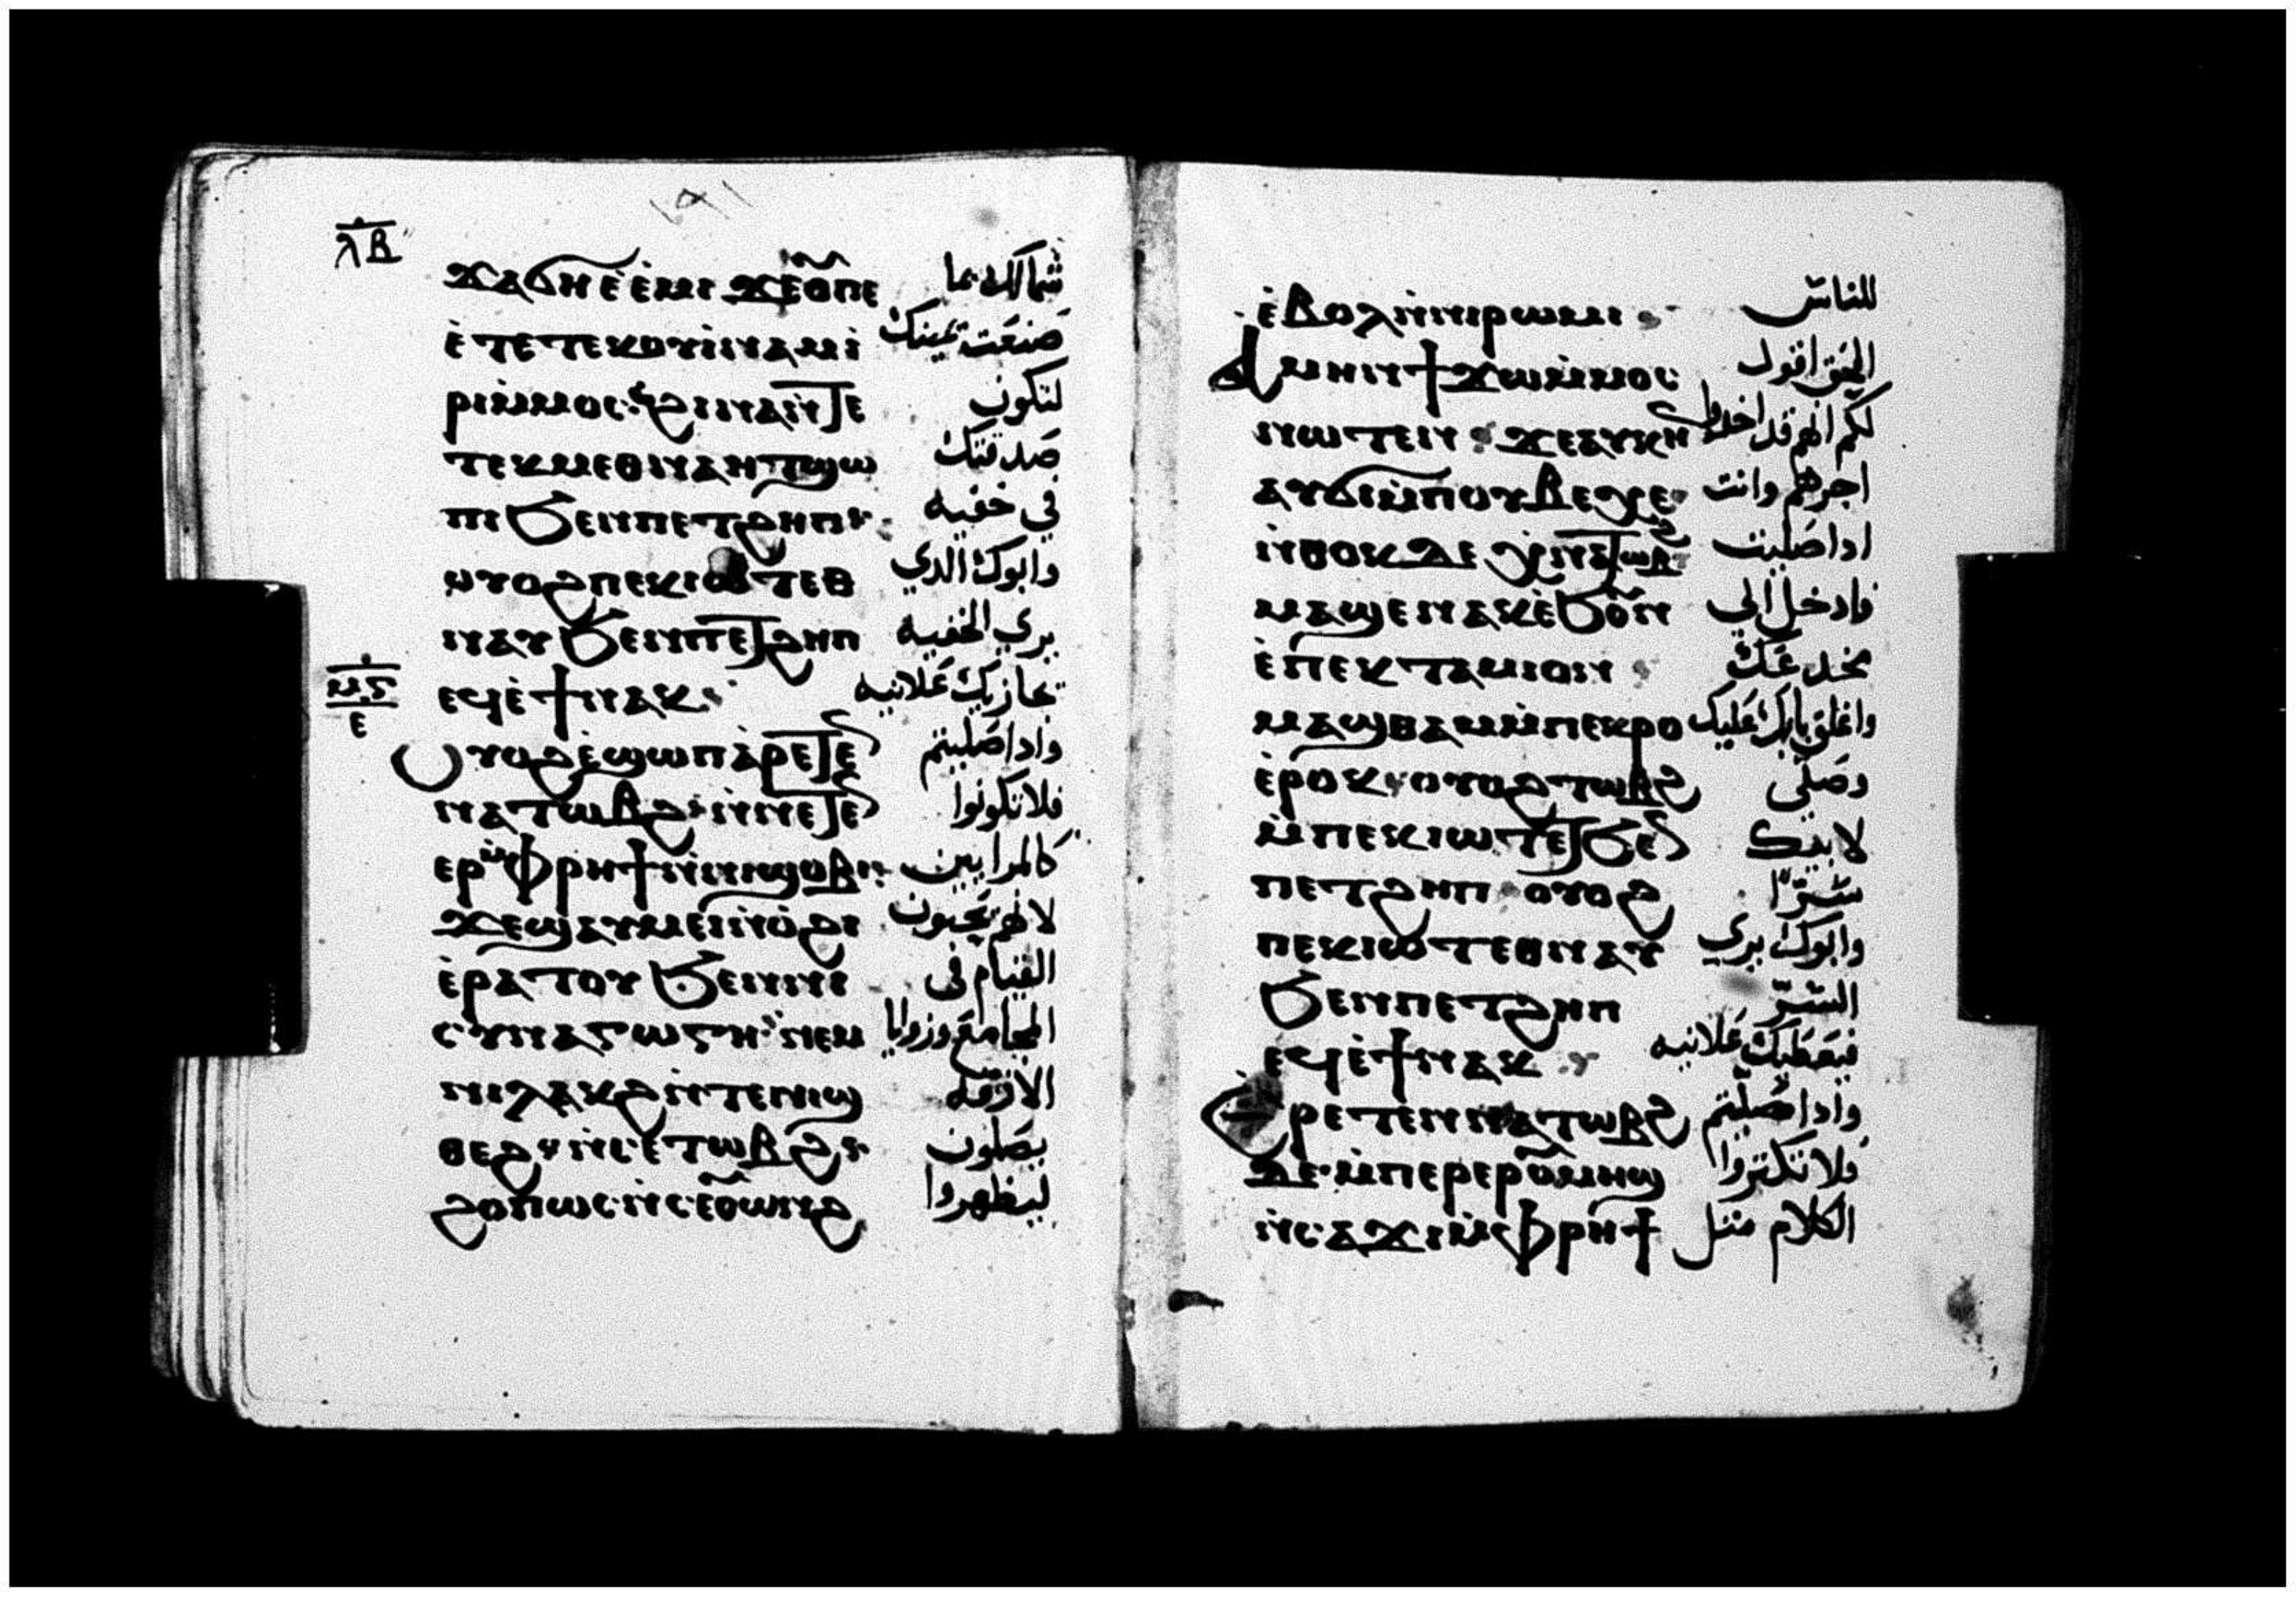 ⲗⲃ
ϫⲁϭⲏ ⲉ̀ⲉ̀ⲙⲓ ϫⲉⲟⲩⲡⲉ شمالك بما
ⲉ̀ⲧⲉⲧⲉⲕⲟⲩⲓ̀ⲛⲁⲙ ⲓ̀ صنعت يمينك
ⲣⲓⲙ̀ⲙⲟⲥ ϩⲓⲛⲁⲛ̀ⲧⲉ لتكون
ⲧⲉⲕⲙⲉⲑⲛⲁⲏⲧ ϣⲱ صدقتك
ⲡⲓ ϧⲉⲛⲡⲉⲧϩⲏⲡ في خفيه
ⲟⲩⲟϩ ⲡⲉⲕⲓⲱⲧ ⲉⲑ وابوك الدي
ⲛⲁⲩ ϧⲉⲛⲡⲉⲧϩⲏⲡ يري الخفيه
ⲙⲋ
ⲉ
ⲉϥⲉ̀ϯⲛⲁⲕ يجازيك علانيه
ⲟⲩⲟϩ ⲉ̀ϣⲱⲡ ⲁ̀ⲣⲉⲧⲉ واداصليتم
ⲛⲁⲧⲱⲃϩ ⲛ̀ⲛⲉⲧⲉ فلاتكونوا
ⲉⲣⲙ̀ⲫⲣⲏϯ ⲛ̀ⲛⲓϣⲟⲃⲓ كالمرايين
ϫⲉϣⲁⲩⲙⲉⲓⲛ̀ⲟ̀ϩⲓ لانهم يحبون
ⲉ̀ⲣⲁⲧⲟⲩ ϧⲉⲛⲛⲓ القيام في
ⲥⲩⲛⲁⲅⲱⲅⲏ ⲛⲉⲙ المجامع وزوايا
ⲛⲓⲗⲁⲕϩ ⲛ̀ⲧⲉⲛⲓϣ الازقه
ⲑⲉϩ ⲛ̀ⲥⲉⲧⲱⲃϩ يصلون
ϩⲟⲡⲱⲥ ⲛ̀ⲥⲉⲟⲩⲱⲛϩ ليظهروا
ⲉ̀ⲃⲟⲗ ⲛ̀ⲛⲓⲣⲱⲙⲓ للناس
ⲁⲙⲏⲛ ϯϫⲱ ⲙ̀ⲙⲟⲥ الحق اقول
ⲛⲱⲧⲉⲛ ϫⲉⲁⲩⲕⲏ لكم انهم قد اخدوا
ⲁⲩϭⲓⲙ̀ⲡⲟⲩⲃⲉⲭⲉ اجرهم وانت
ⲛ̀ⲑⲟⲕ ⲇⲉ ⲭⲛⲁⲧⲱⲃϩ اداصليت
ⲙⲁϣⲉⲛⲁⲕ ⲉ̀ϧⲟⲩⲛ فادخل الي
ⲉ̀ⲡⲉⲕⲧⲁⲙⲓⲟⲛ مخدعك
ⲙⲁϣⲑⲁⲙ ⲙ̀ⲡⲉⲕⲣⲟ واغلق بابك عليك
ⲉ̀ⲣⲟⲕ ⲟⲩⲟϩ ⲧⲱⲃϩ وصلي
ⲙ̀ⲡⲉⲕⲓⲱⲧ ⲉⲧϧⲉ لابيك
ⲡⲉⲧϩⲏⲡ ⲟⲩⲟϩ سرّا
ⲡⲉⲕⲓⲱⲧ ⲉⲑⲛⲁⲩ وابوك يري
ϧⲉⲛⲡⲉⲧϩⲏⲡ السرّ
ⲉϥⲉ̀ϯⲛⲁⲕ فيعطيك علانيه
ⲁⲣⲉⲧⲉⲛⲛⲁⲧⲱⲃϩ واداصليتم
ⲇⲉ ⲙ̀ⲡⲉⲣⲉⲣⲟⲩⲙⲏϣ فلا تكتروا
ⲛ̀ⲥⲁϫⲓ ⲙ̀ⲫⲣⲏϯ الكلام متل